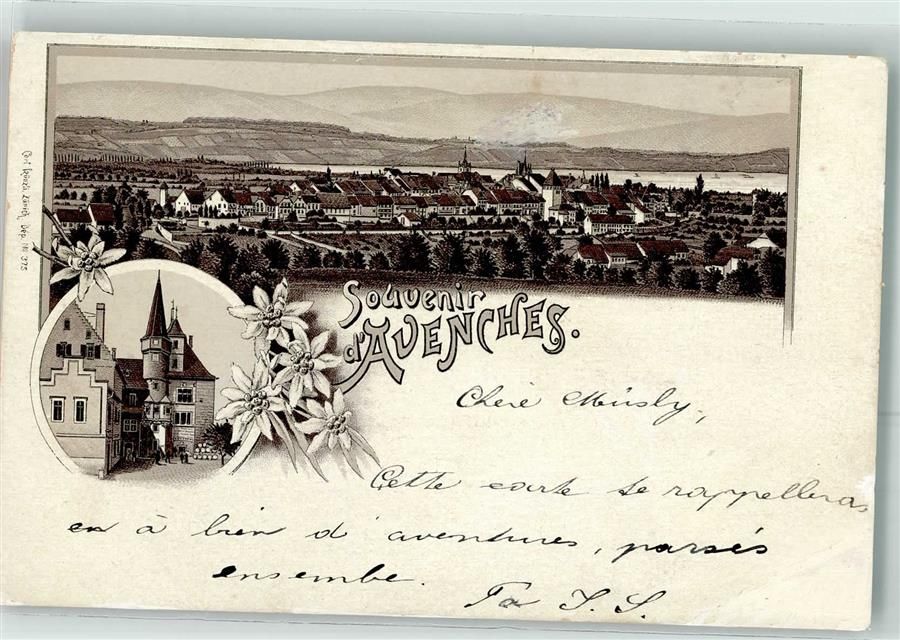 Souvenir
d'AVENCHES.
Chère Müsly,
Cette carte te rappelleras
en à bien d'aventures, passés
ensembe.
Ta J. S.